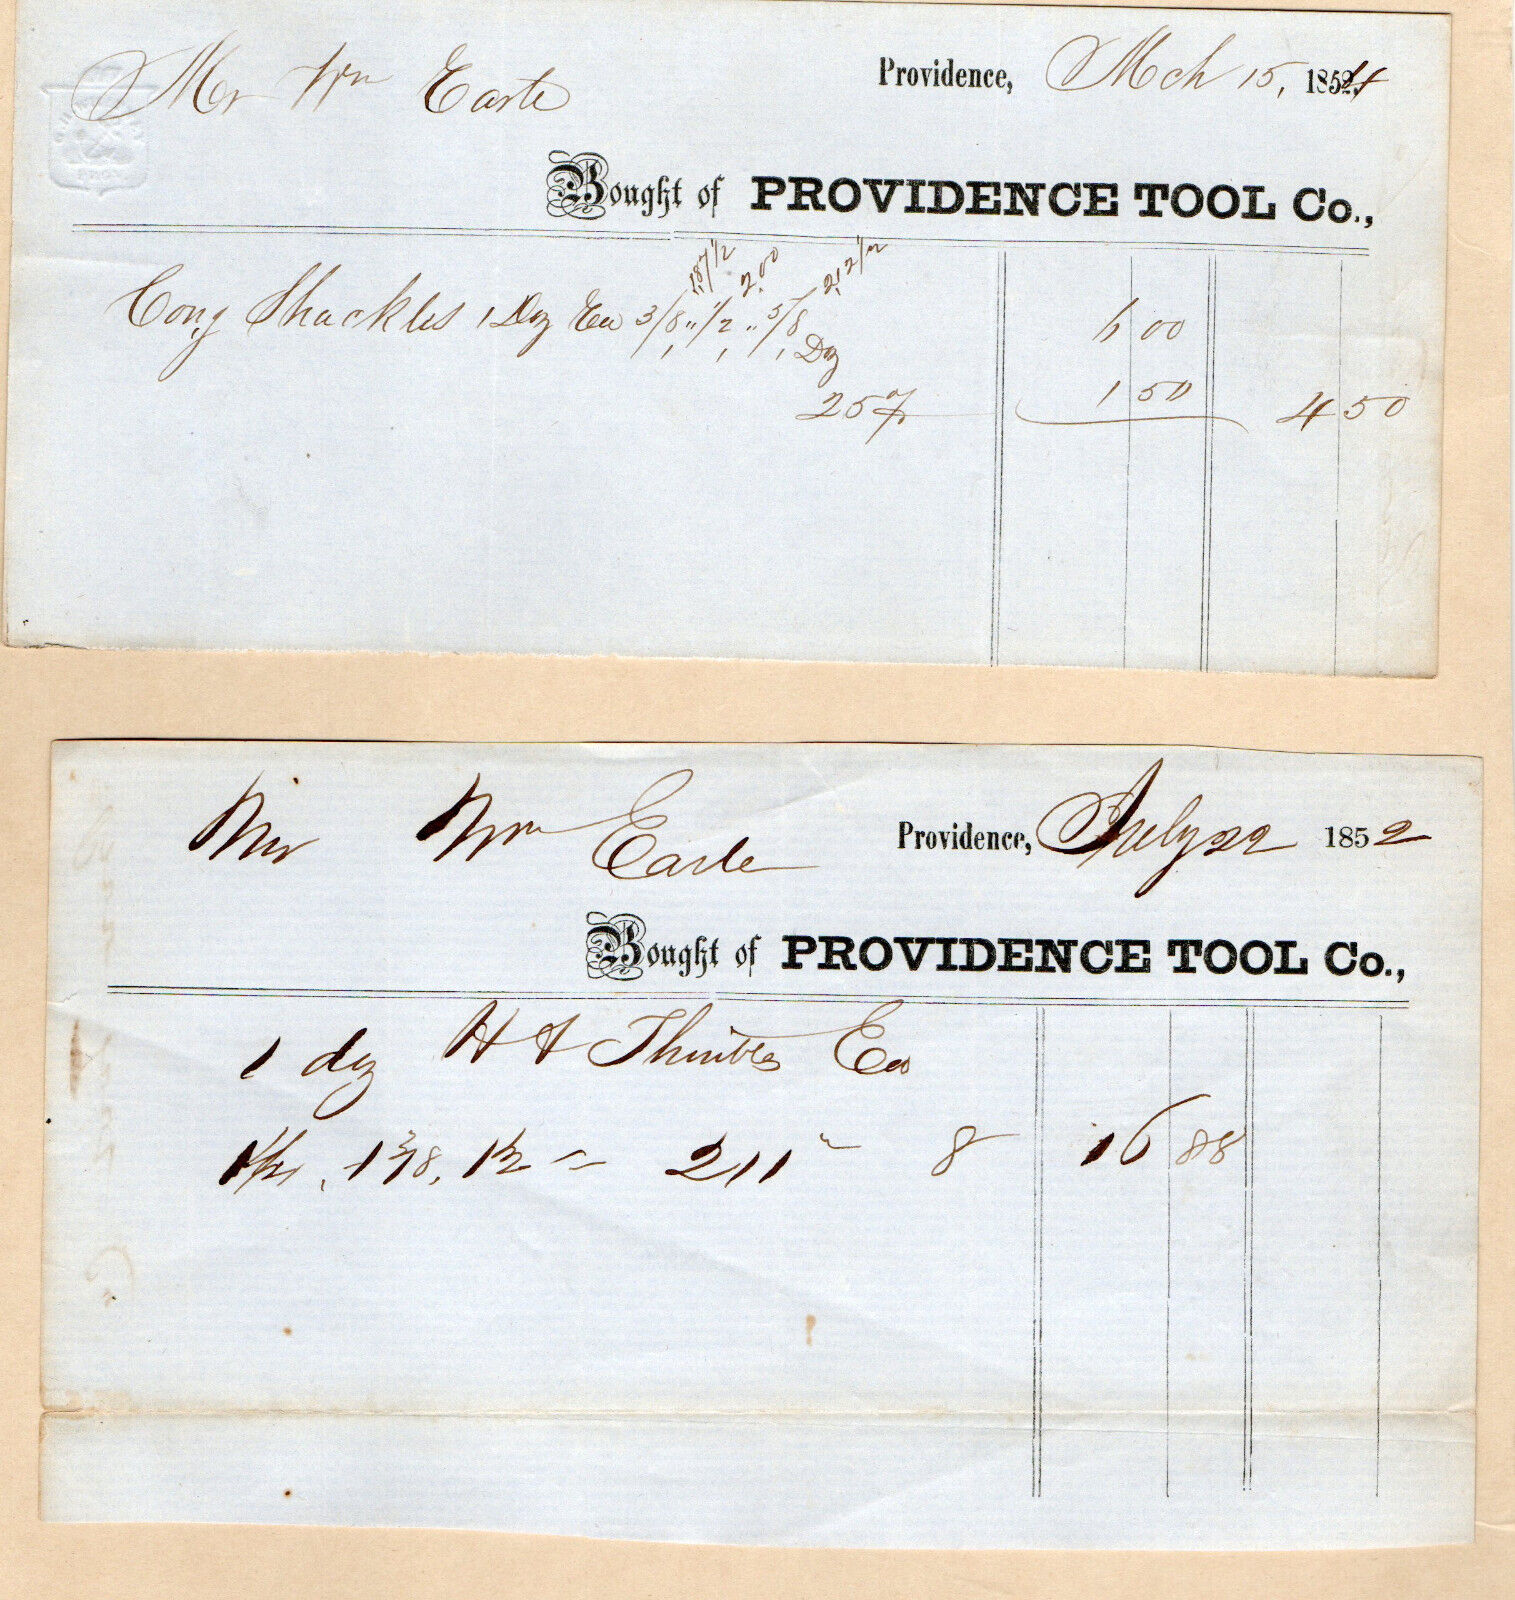 Mr Wm Earle
Providence, Mch 15, 1854
Bought of PROVIDENCE TOOL Co.,
1.87 1/2 2.00 2.12 1/2
Cong Shackles 1 Doz Ea 3/8, " 1/2, " 5/8, Doz 6 00
25% 1 50 4 50
Mr Wm Earle
Providence, July 22 1852
Bought of PROVIDENCE TOOL Co.,
1 doz H & Thimbles Ea
1 3/8, 1 1/2 = 211 " 8 16 88